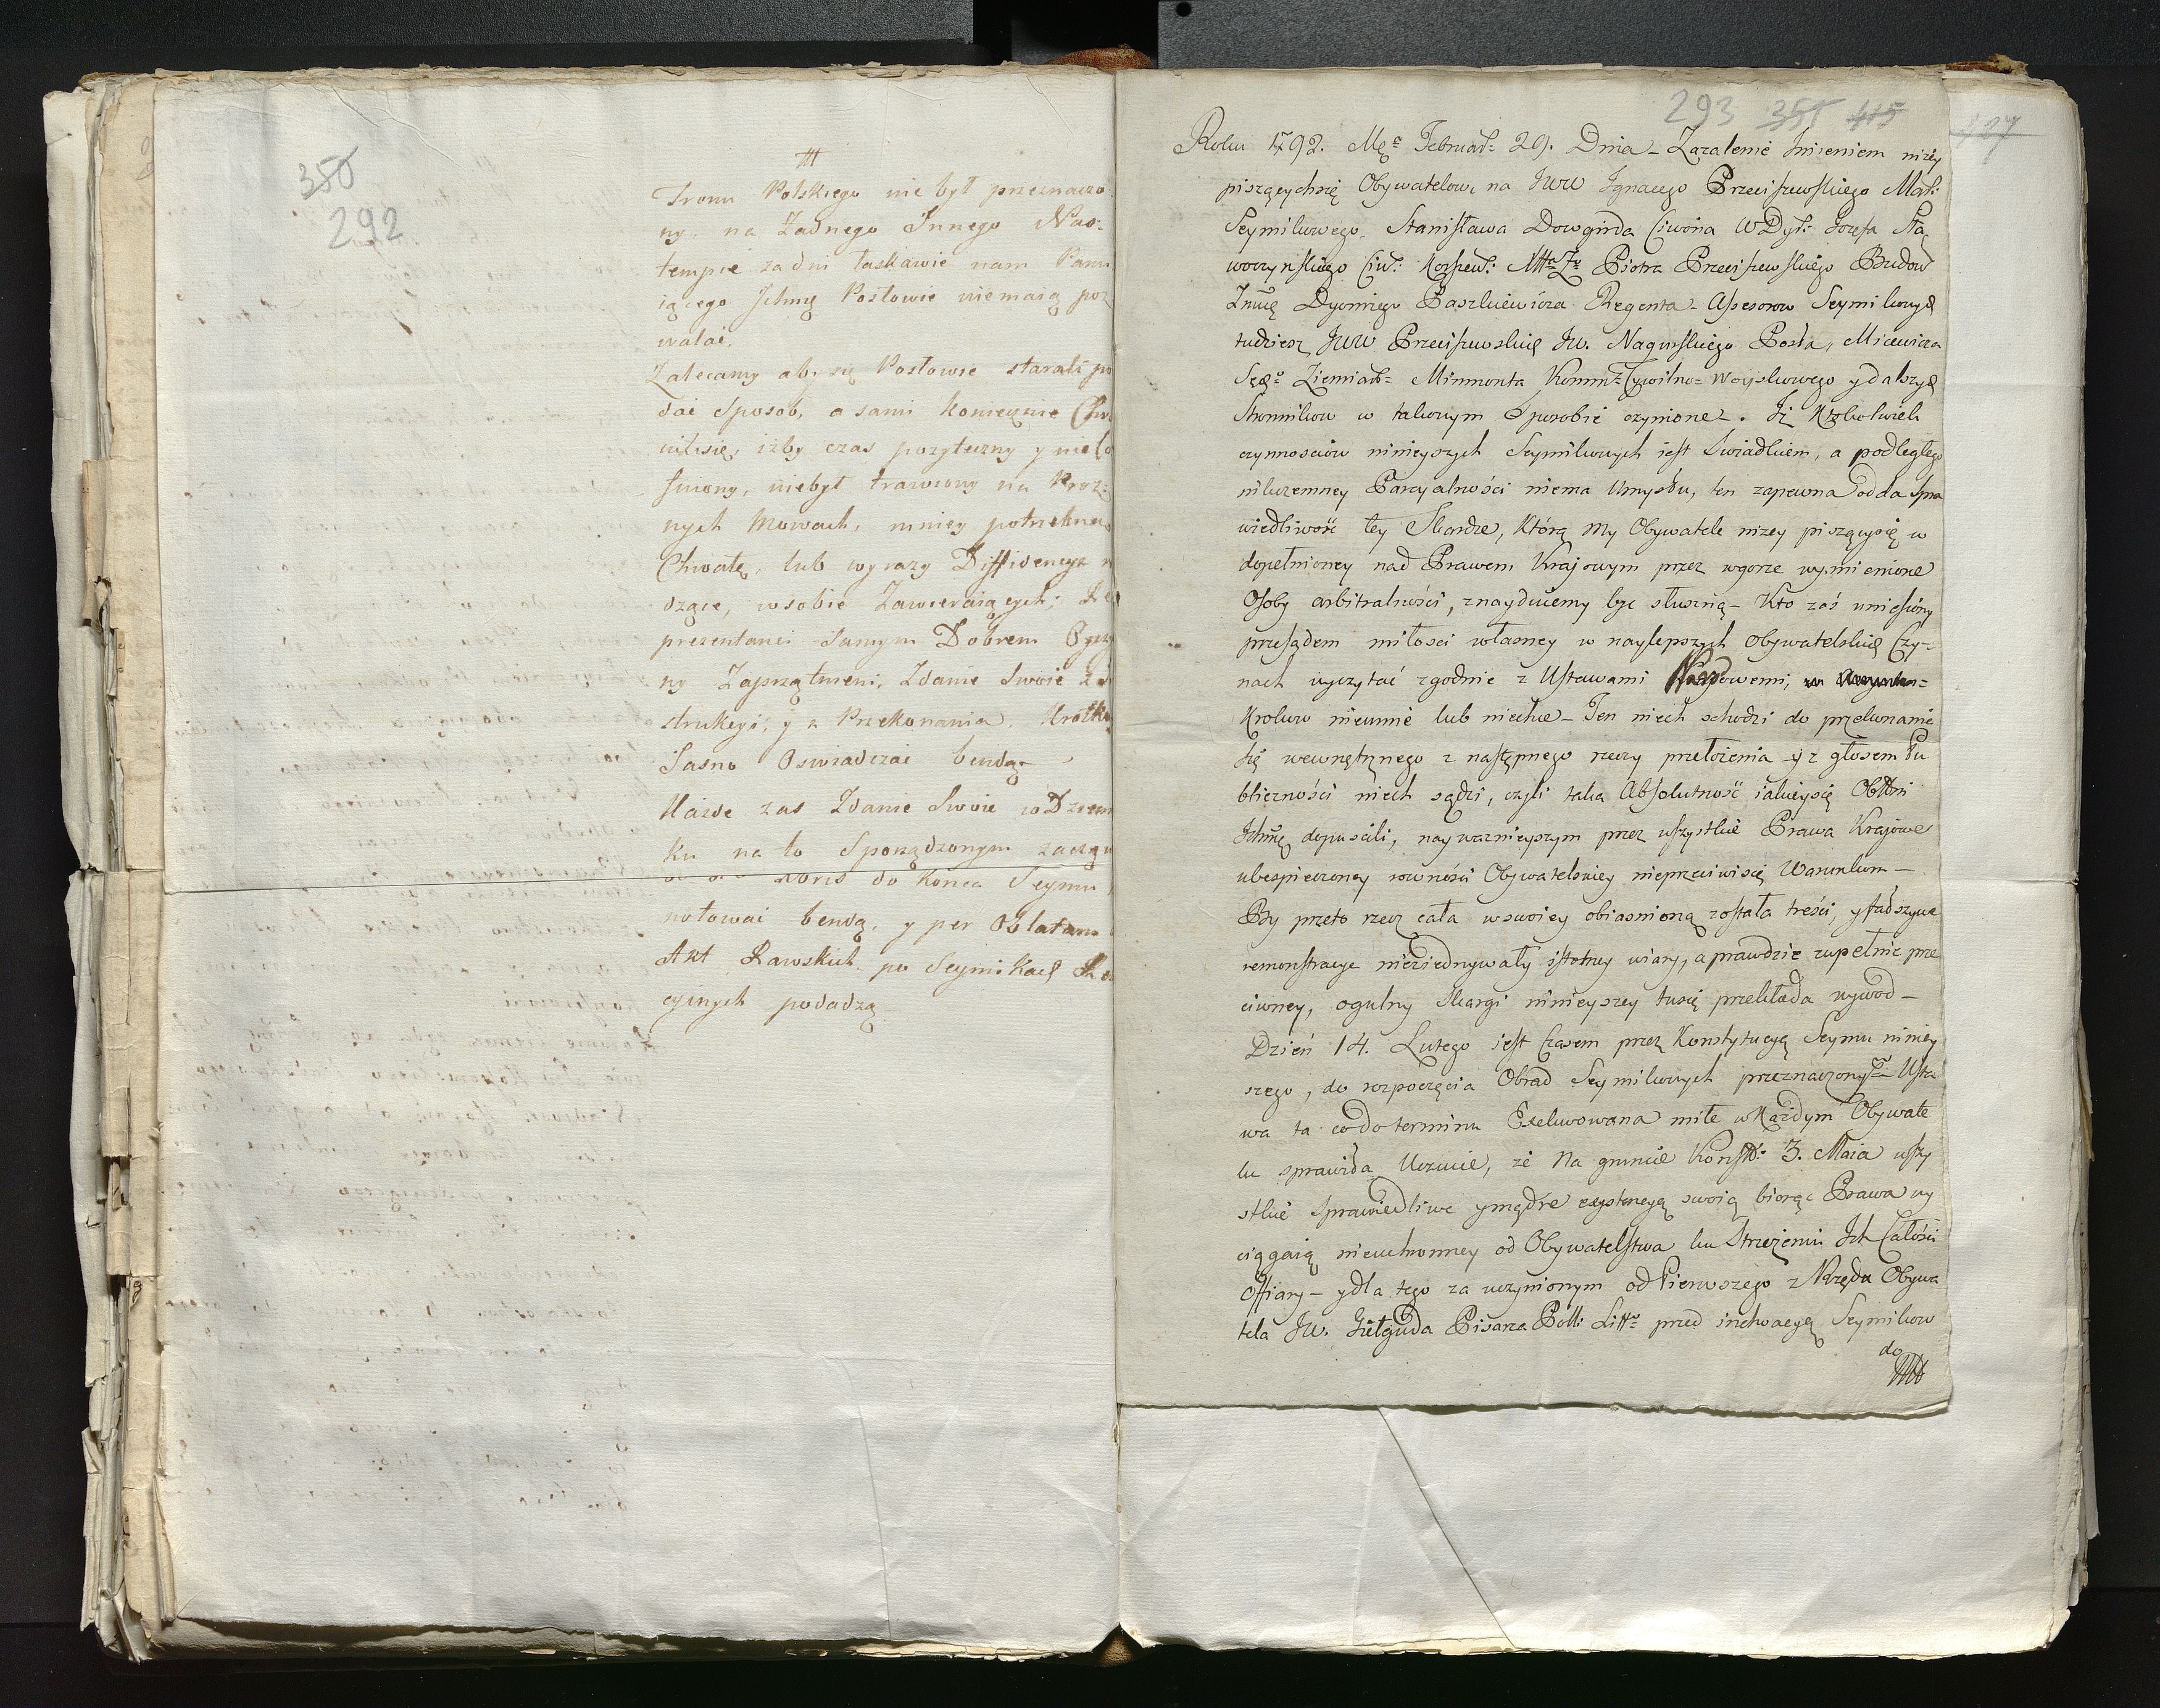 350
292
Tronu Polskiego nie był przeznaczo
ny, na Zadnego Innego Nas:
tempie za dni łaskawie nam Panu
iącego Jchmę Posłowie niemaią poz
walać.
Zalecamy aby się Posłowie starali po
dać Sposob, a sami koniecznie
iżby czas pozyteczny y
niebył trawiony na Proz:
nych Mowach, mniey potrzebne
Chwałę, lub wyrazy Diffidencya
dzące, w sobie Zawieraiących;
prezentanci Samym Dobrem Oyczy
ny Zaprzątnieni, Zdanie Swoie
strukcyi, y z Przekonania, Krotko
Jasno Oswiadczać bendą
Kazde zas Zdanie Swoie w Dzien
ku na to Sporządzonym
do Konca Seymu
notować bendą, y per Oblatam
Akt Rawskich po Seymikach
cyinych podadzą
293 351 415
Roku 1792. Februar: 29. Dnia - Zazalenie Imieniem niżey
piszących się Obywatelow, na Jww Ignacego Przeciszewskiego
Seymikowego, Stanisława Dowgirda Ciwona Jozefa
Piotra Przeciszewskiego Budow
Paszkiewicza Regenta - Assesorow Seymikowych
tudziesz Jww Przeciszewskich Jw. Nagurskiego Posła, Micewicza
Ziemiań: Cywilno = Woyskowego y dalszych
Stronnikow w takowym Sposobie czynione. Jż Ktokolwiek
czynnosciow ninieyszych Seymikowych iest Swiadkiem, a podległego
nikczemney Parcyalności niema Umysłu, ten zapewna odda Spra
wiedliwość tey Skardze, którą My Obywatele nizey piszącysię w
dopełnioney nad Prawem Krajowym przez wgorze wymienione
Osoby arbitralności, znayduiemy byc słuszną - Kto zaś uniesiony
przesądem miłosci własney w naylepszych Obywatelskich Czy-
nach wyczytać zgodnie z Ustawami
Krokow nieumie lub niechce - Ten niech schodzi do przekonania
się wewnętrznego z następnego rzeczy przełożenia y z głosem Pu
bliczności niech sądzi, czyli taka Absolutność iakieysię
Ichmę dopuscili, naywaznieyszym przez wszystkie Prawa Krajowe
ubespieczoney rowności Obywatelskiey nieprzeciwisię Warunkom -
By przeto rzecz cała w swoiey obiasnioną została treści, y fałszywe
remonstracye nieziednywały istotney wiary, a prawdzie zupełnie prze
ciwney, ogulny Skargi ninieyszey tusię przekłada wywod -
Dzień 14. Lutego iest Czasem przez Konstytucyą Seymu niniey
szego, do rozpoczęcia Obrad Seymikowych przeznaczonym - Usta
wa ta co do terminu Exekwowana miłe w każdym Obywate
lu sprawiła Uczucie, że Na gruncie 3. Maia wszy
stkie Sprawiedliwe y mądre exystencyą swoią biorąc Prawa wy
ciągaią nieuchronney od Obywatelstwa ku Strzeżeniu Jch Całości
Offiary - y dla tego za uczynionym od Pierwszego z Urzędu Obywa
tela Jw. Giełguda Pisarza przed inchoacyą Seymikow
do